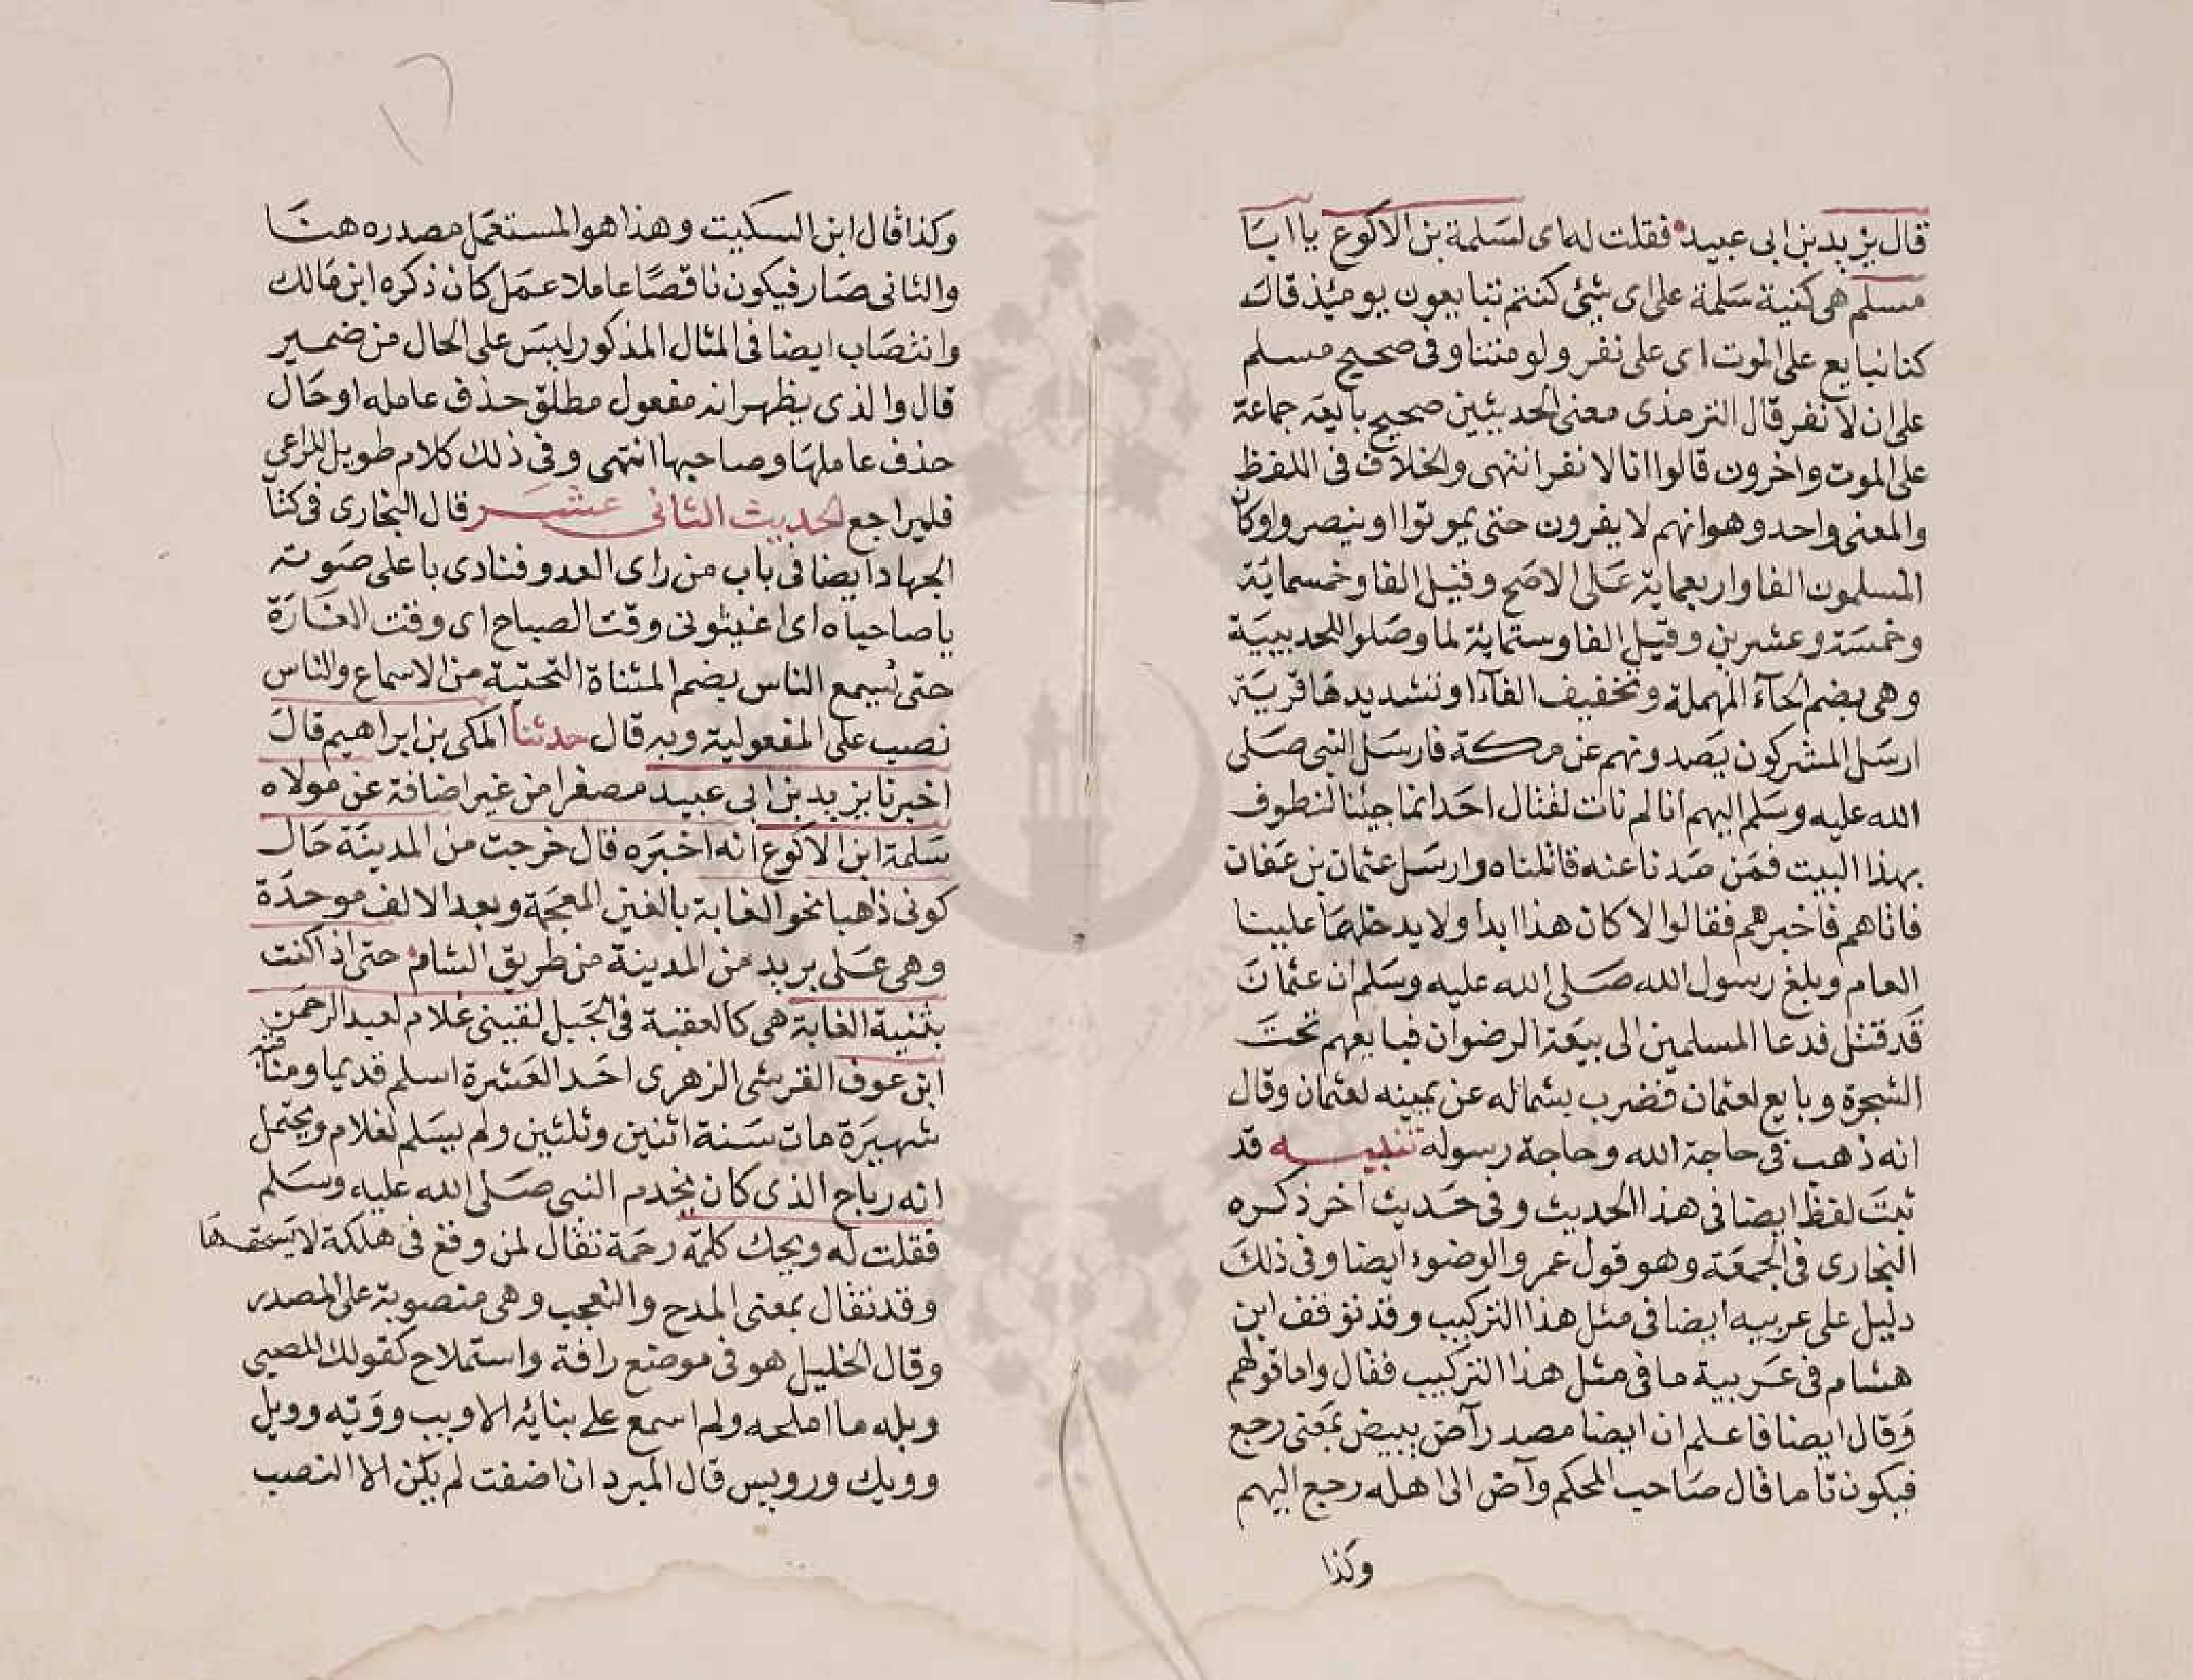 قال يزيد بن ابى عبيد فقلت له اى لسلمة بن الاكوع يا ابا
مسلم هى كنية سلمة على اى شئ كنتم تبايعون يومئذ قال
كنا نبايع على الموت اى على نفر ولو متنا وفى صحيح مسلم
على ان لا نفر قال الترمذى معنى الحديثين صحيح بايعه جماعة
على الموت واخرون قالوا انا لا نفر انتهى والخلاف فى اللفظ
والمعنى واحد وهو انهم لا يفرون حتى يموتوا او ينصروا وكان
المسلمون الفا واربعماية على الاصح وقيل الفا وخمسمائة
وخمسة وعشرين وقيل الفا وستمائة لما وصلوا للحديبية
وهى بضم الحآء المهملة وتخفيف الفآء او تشديدها قرية
ارسل المشركون يصدونهم عن مكة فارسل النبى صلى
الله عليه وسلم اليهم انا لم نات لقتال احد انما جئنا لنطوف
بهذا البيت فمن صدنا عنه قاتلناه وارسل عثمان بن عفان
فاتاهم فاخبرهم فقالوا لا كان هذا ابدا ولا يدخلها علينا
العام وبلغ رسول الله صلى الله عليه وسلم ان عثمان
قد قتل فدعا المسلمين الى بيعة الرضوان فبايعهم تحت
الشجرة وبايع لعثمان فضرب بشماله عن يمينه لعثمان وقال
انه ذهب فى حاجة الله وحاجة رسوله تنبيه قد
ثبت لفظ ايضا فى هذا الحديث وفى حديث اخر ذكره
البخارى فى الجمعة وهو قول عمر والوضوء ايضا وفى ذلك
دليل على عربيه ايضا فى مثل هذا التركيب وقد توقف ابن
هشام فى عربية ما فى مثل هذا التركيب فقال واما قولهم
وقال ايضا فاعلم ان ايضا مصدر آض يبيض بمعنى رجع
فيكون تاما قال صاحب المحكم وآض الى اهله رجع اليهم
وكذا
وكذا قال ابن السكيت وهذا هو المستعمل مصدره هنا
والثانى صار فيكون ناقصا عاملا عمل كان ذكره ابن مالك
وانتصاب ايضا فى المثال المذكور ليس على الحال من ضمير
قال والذى يظهر انه مفعول مطلق حذف عامله او حال
حذف عاملها وصاحبها انتهى وفى ذلك كلام طويل للراعى
فليراجع الحديث الثانى عشر قال البخارى فى كتا
الجهاد ايضا فى باب من راى العدو فنادى باعلى صوته
ياصاحياه اى اغيثونى وقت الصباح اى وقت الغارة
حتى يسمع الناس بضم المثناة التحتية من الاسماع والناس
نصب على المفعولية وبه قال حدثنا المكى بن ابراهيم قال
اخبرنا يزيد بن ابى عبيد مصغرا من غير اضافة عن مولاه
سلمة ابن الاكوع انه اخبره قال خرجت من المدينة حال
كونى ذاهبا نحو الغابة بالغين المعجمة وبعد الالف موحدة
وهى على بريد من المدينة من طريق الشام حتى اذا كنت
بثنية الغابة هى كالعقبة فى الجبل لقينى غلام لعبد الرحمن
ابن عوف القرشى الزهرى احد العشرة اسلم قديما ومناقبه
شهيرة مات سنة اثنين وثلثين ولم يسلم لغلام ويحتمل
انه رباح الذى كان يخدم النبى صلى الله عليه وسلم
فقلت له ويحك كلمة رحمة تقال لمن وقع فى هلكة لا يستحقها
وقد تقال بمعنى المدح والتعجب وهى منصوبة على المصدر
وقال الخليل هو فى موضع رافة واستملاح كقولك للصبى
ويله ما املحه ولم اسمع على بنائه الا ويب وويه وويل
وويك ورويس قال المبرد ان اضفت لم يكن الا النصب